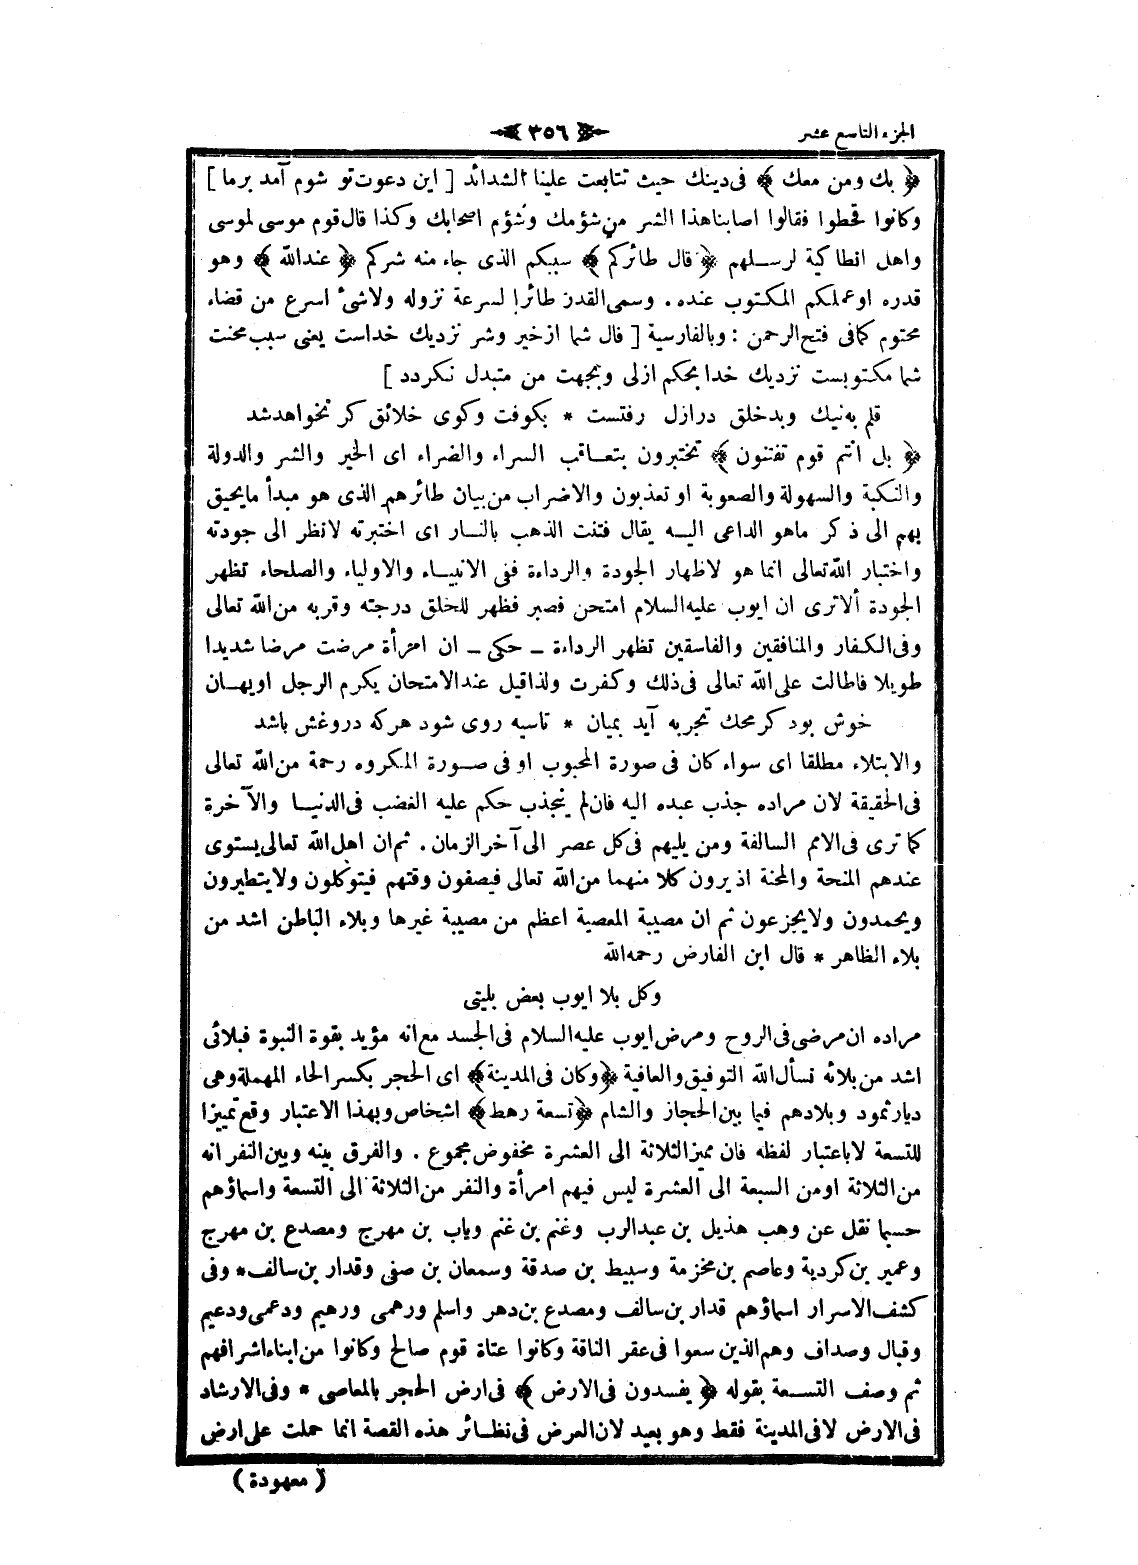 الجزء التاسع عشر
٣٥٦
﴿ بك ومن معك ﴾ فى دينك حيث تتابعت علينا الشدائد [ اين دعوت تو شوم آمد برما ]
وكانوا قحطوا فقالوا اصابنا هذا الشر من شؤمك وشؤم اصحابك وكذا قال قوم موسى لموسى
واهل انطاكية لرسلهم ﴿ قال طائركم ﴾ سببكم الذى جاء منه شركم ﴿ عند الله ﴾ وهو
قدره او عملكم المكتوب عنده . وسمى القدر طائرا لسرعة نزوله ولا شئ اسرع من قضاء
محتوم كما فى فتح الرحمن : وبالفارسية [ فال شما از خير وشر نزديك خداست يعنى سبب محنت
شما مكتوبست نزديك خدا بحكم ازلى وبجهت من متبدل نكردد ]
قلم به نيك وبد خلق در ازل رفتست * بكوفت وكوى خلائق كر نخواهد شد
﴿ بل انتم قوم تفتنون ﴾ تختبرون بتعاقب السراء والضراء اى الخير والشر والدولة
والنكبة والسهولة والصعوبة او تعذبون والاضراب من بيان طائرهم الذى هو مبدأ ما يحيق
بهم الى ذكر ما هو الداعى اليه يقال فتنت الذهب بالنار اى اختبرته لانظر الى جودته
واختبار الله تعالى انما هو لاظهار الجودة والرداءة ففى الانبياء والاولياء والصلحاء تظهر
الجودة ألا ترى ان ايوب عليه السلام امتحن فصبر فظهر للخلق درجته وقربه من الله تعالى
وفى الكفار والمنافقين والفاسقين تظهر الرداءة ـ حكى ـ ان امرأة مرضت مرضا شديدا
طويلا فاطالت على الله تعالى فى ذلك وكفرت ولذا قيل عند الامتحان يكرم الرجل او يهان
خوش بود كر محك تجربه آيد بميان * تا سيه روى شود هركه دروغش باشد
والابتلاء مطلقا اى سواء كان فى صورة المحبوب او فى صورة المكروه رحمة من الله تعالى
فى الحقيقة لان مراده جذب عبده اليه فان لم ينجذب حكم عليه الغضب فى الدنيا والآخرة
كما ترى فى الامم السالفة ومن يليهم فى كل عصر الى آخر الزمان . ثم ان اهل الله تعالى يستوى
عندهم المنحة والمحنة اذ يرون كلا منهما من الله تعالى فيصفون وقتهم فيتوكلون ولا يتطيرون
ويحمدون ولا يجزعون ثم ان مصيبة المعصية اعظم من مصيبة غيرها وبلاء الباطن اشد من
بلاء الظاهر * قال ابن الفارض رحمه الله
وكل بلا ايوب بعض بليتى
مراده ان مرضى فى الروح ومرض ايوب عليه السلام فى الجسد مع انه مؤيد بقوة النبوة فبلائى
اشد من بلائه نسأل الله التوفيق والعافية ﴿ وكان فى المدينة ﴾ اى الحجر بكسر الحاء المهملة وهى
ديار ثمود وبلادهم فيما بين الحجاز والشام ﴿ تسعة رهط ﴾ اشخاص وبهذا الاعتبار وقع تمييزا
للتسعة لا باعتبار لفظه فان مميز الثلاثة الى العشرة مخفوض مجموع . والفرق بينه وبين النفر انه
من الثلاثة او من السبعة الى العشرة ليس فيهم امرأة والنفر من الثلاثة الى التسعة واسماؤهم
حسبما نقل عن وهب هذيل بن عبد الرب وغنم بن غنم وياب بن مهرج ومصدع بن مهرج
وعمير بن كردبة وعاصم بن مخزمة وسبيط بن صدقة وسمعان بن صفى وقدار بن سالف * وفى
كشف الاسرار اسماؤهم قدار بن سالف ومصدع بن دهر واسلم ورهمى ورهيم ودعمى ودعيم
وقبال وصداف وهم الذين سعوا فى عقر الناقة وكانوا عتاة قوم صالح وكانوا من ابناء اشرافهم
ثم وصف التسعة بقوله ﴿ يفسدون فى الارض ﴾ فى ارض الحجر بالمعاصى * وفى الارشاد
فى الارض لا فى المدينة فقط وهو بعيد لان العرض فى نظائر هذه القصة انما حملت على ارض
( معهودة )